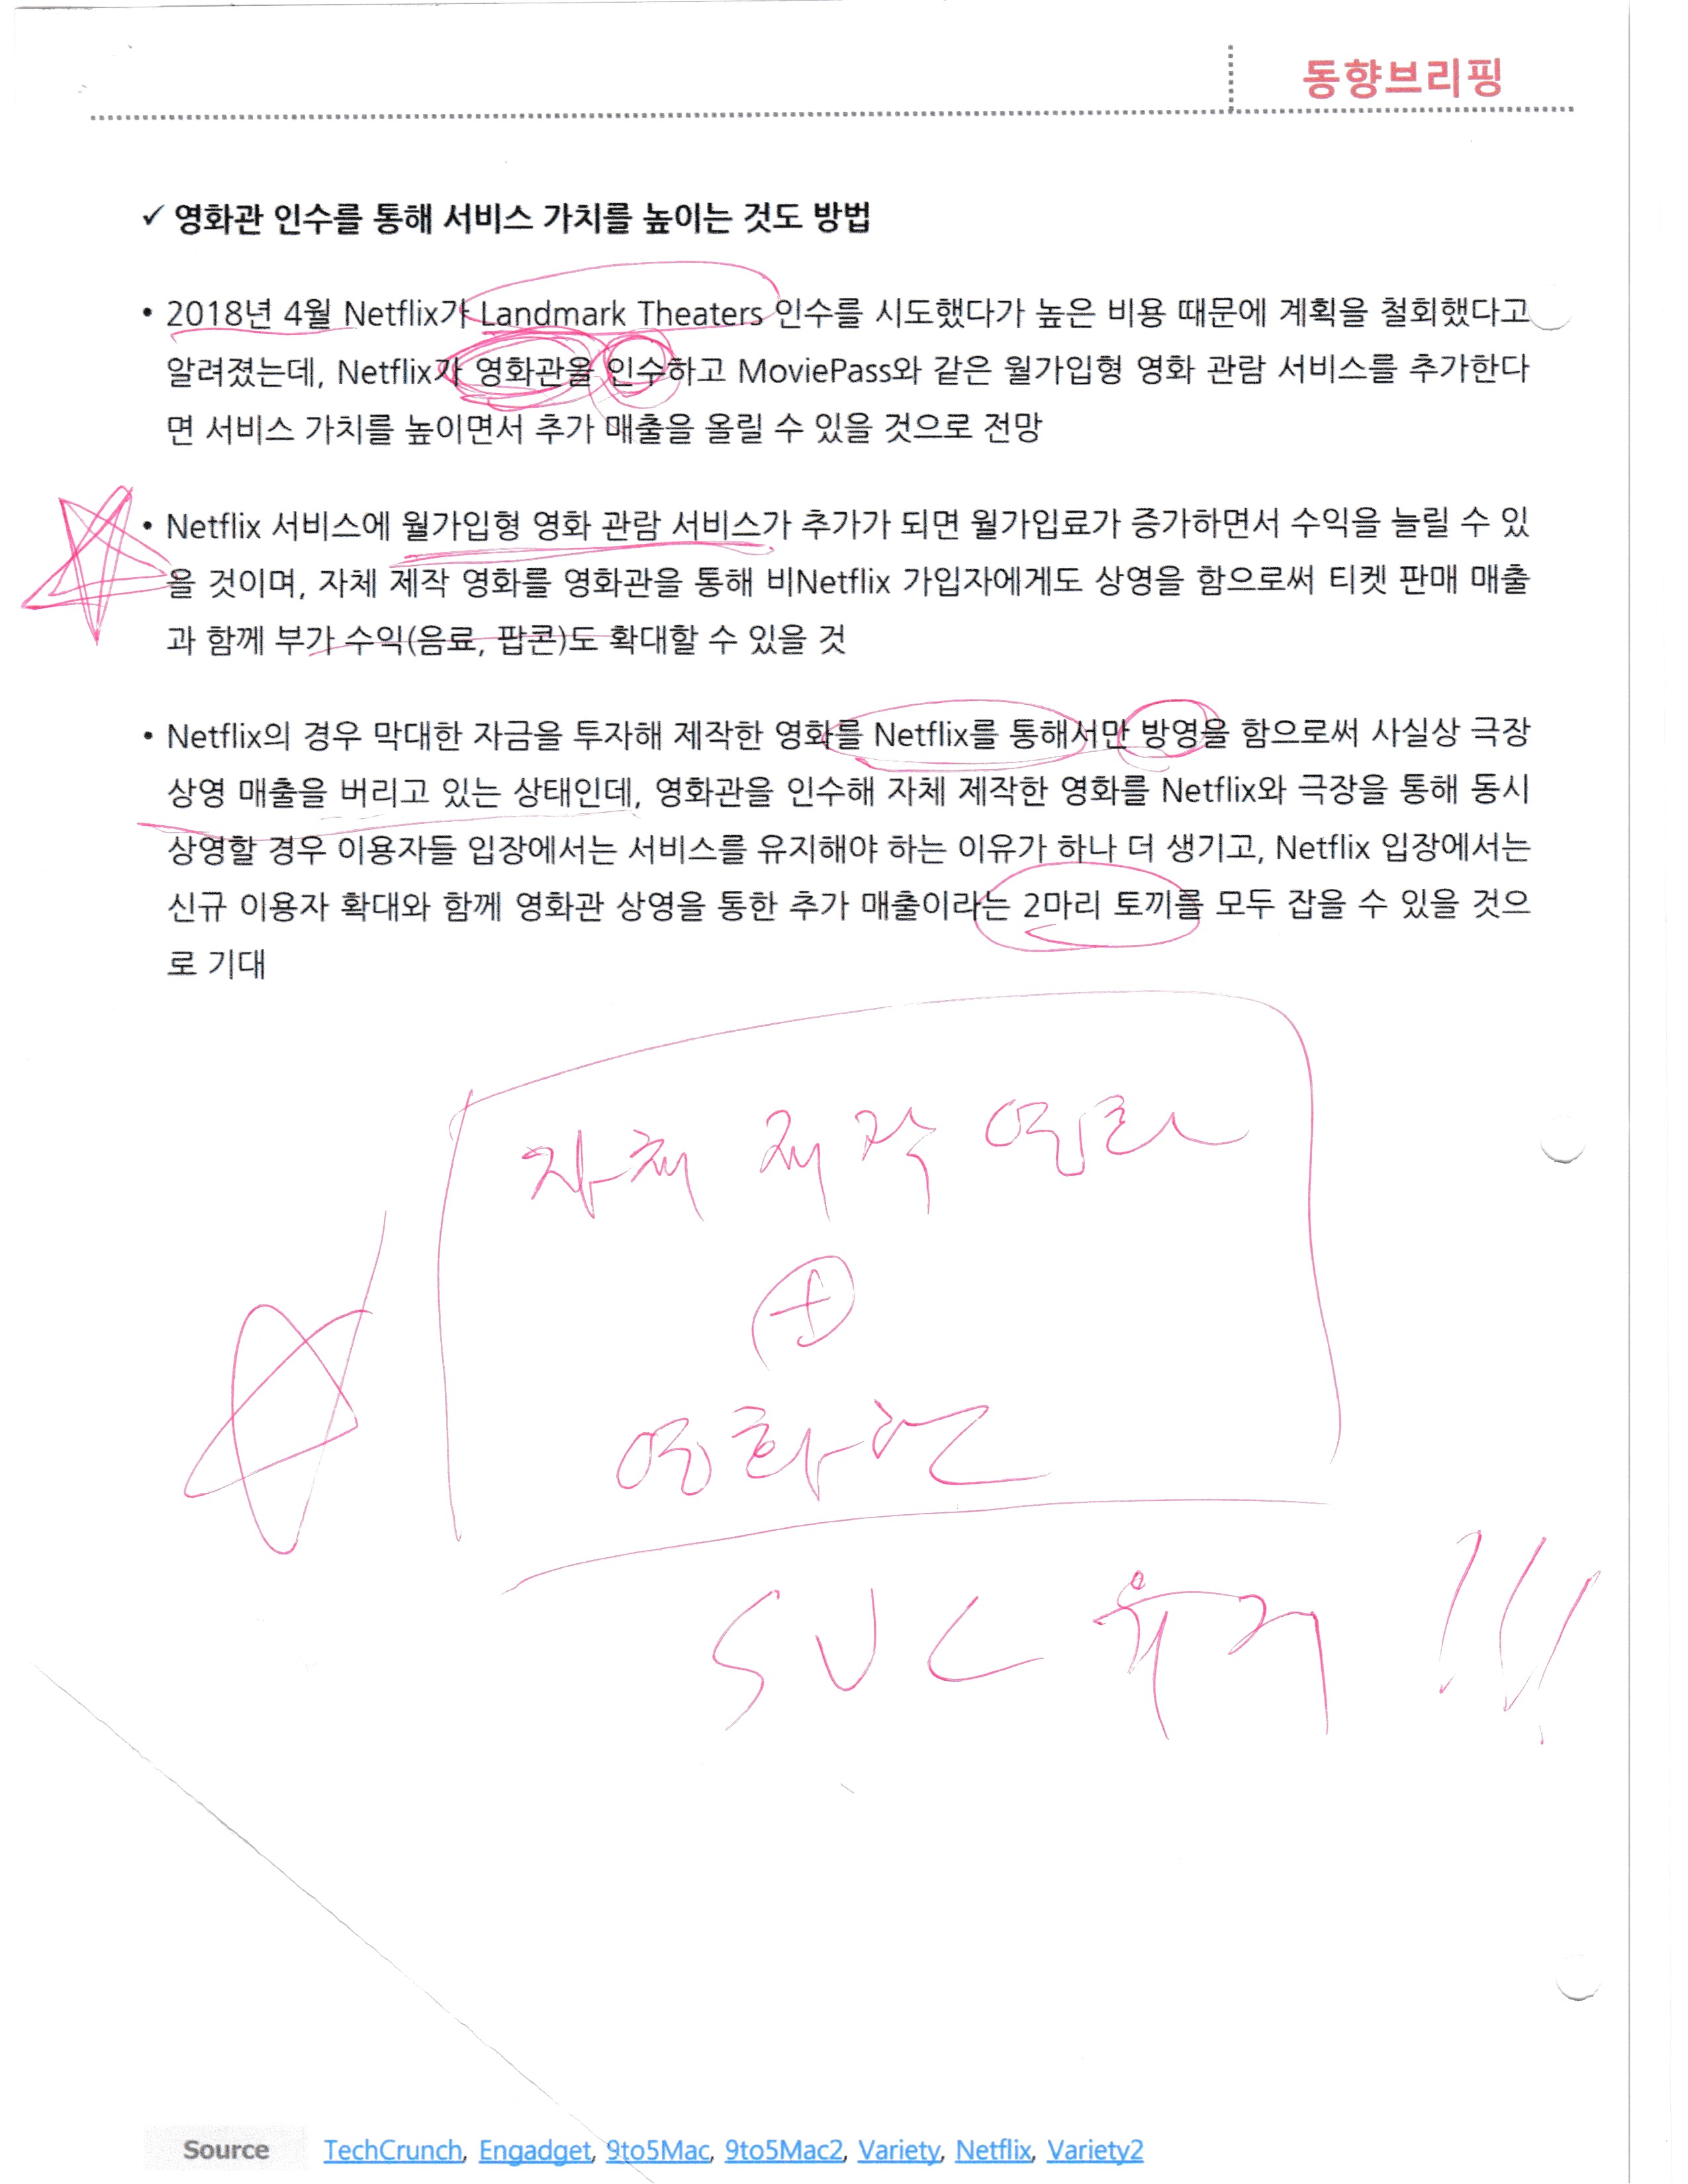 동향브리핑
✓ 영화관 인수를 통해 서비스 가치를 높이는 것도 방법
• 2018년 4월 Netflix가 Landmark Theaters 인수를 시도했다가 높은 비용 때문에 계획을 철회했다고
알려졌는데, Netflix가 영화관을 인수하고 MoviePass와 같은 월가입형 영화 관람 서비스를 추가한다
면 서비스 가치를 높이면서 추가 매출을 올릴 수 있을 것으로 전망
• Netflix 서비스에 월가입형 영화 관람 서비스가 추가가 되면 월가입료가 증가하면서 수익을 늘릴 수 있
을 것이며, 자체 제작 영화를 영화관을 통해 비Netflix 가입자에게도 상영을 함으로써 티켓 판매 매출
과 함께 부가 수익(음료, 팝콘)도 확대할 수 있을 것
• Netflix의 경우 막대한 자금을 투자해 제작한 영화를 Netflix를 통해서만 방영을 함으로써 사실상 극장
상영 매출을 버리고 있는 상태인데, 영화관을 인수해 자체 제작한 영화를 Netflix와 극장을 통해 동시
상영할 경우 이용자들 입장에서는 서비스를 유지해야 하는 이유가 하나 더 생기고, Netflix 입장에서는
신규 이용자 확대와 함께 영화관 상영을 통한 추가 매출이라는 2마리 토끼를 모두 잡을 수 있을 것으
로 기대
자체 제작 영화
+
영화관
SVC 유지 !!!
Source TechCrunch, Engadget, 9to5Mac, 9to5Mac2, Variety, Netflix, Variety2